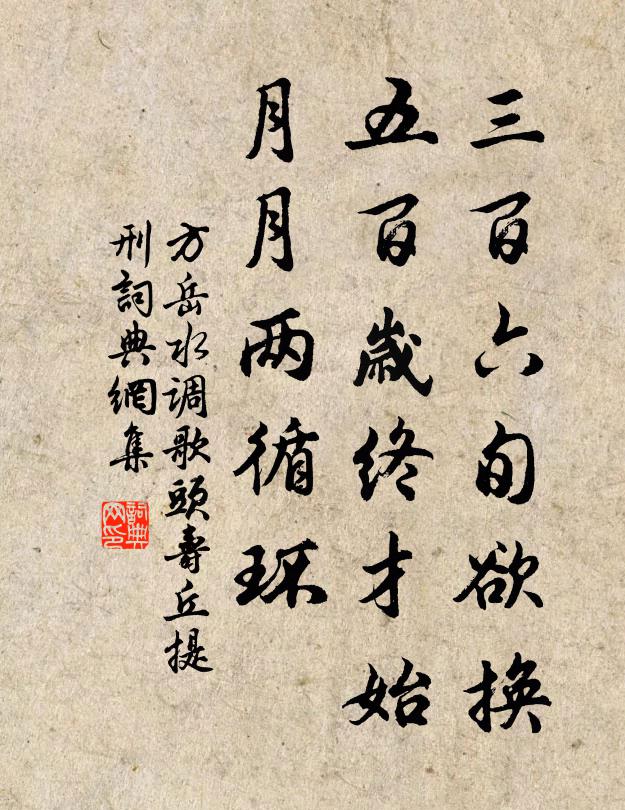 三百六旬欲换
五百歲终才始
月月两循环
方岳水调歌頭壽丘提
刑詞典網集
詞典
网印